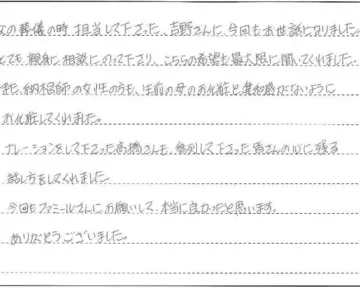 の葬儀の時 担当して下さった、吉野さんに今回もお世話になりました。
とても 親身に相談にのって下さり、こちらの希望も最大限に聞いてくれました。
また、納棺師の女性の方も、生前の母のお化粧と違和感がないように
お化粧してくれました。
ナレーションをして下さった高橋さんも、参列して下さった皆さんの心に残る
話し方をしてくれました。
今回もファミールさんにお願いして、本当に良かったと思います。
ありがとうございました。